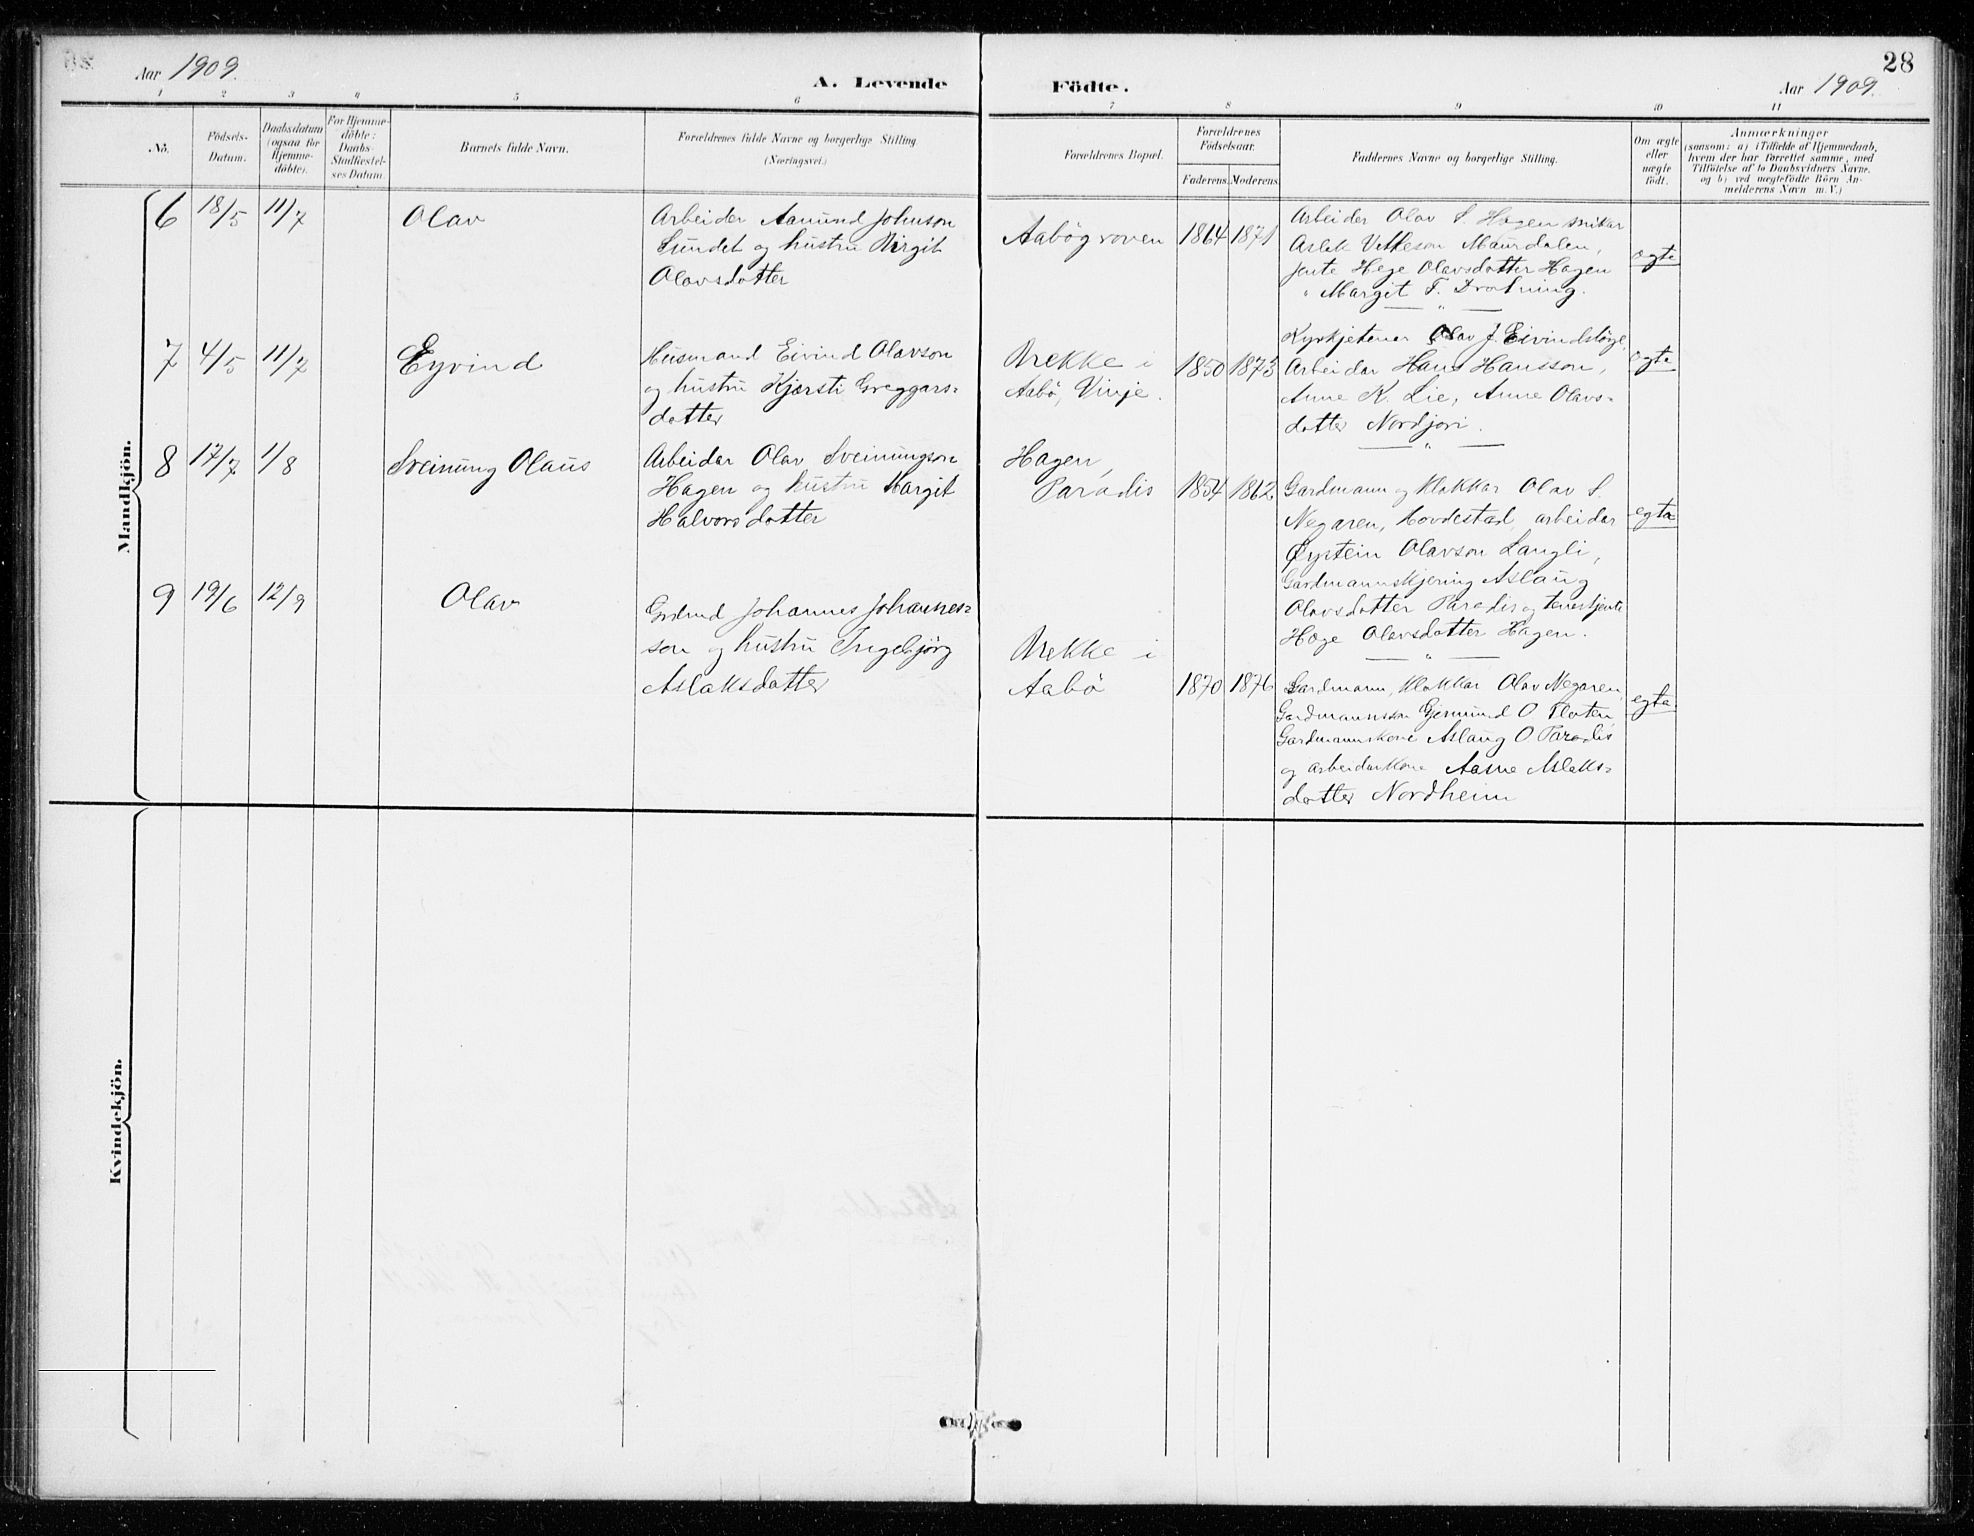 28
Aar 1909.
A. Levende Födte.
Aar 1909.
1 2 3 4 5 6 7 8 9 10 11
No.
Födsels-Datum.
Daabsdatum (ogsaa for Hjemme-döbte).
For Hjemme-döbte: Daabs-Stadfæstel-ses Datum.
Barnets fulde Navn.
Forældrenes fulde Navne og borgerlige Stilling
(Næringsvei.)
Forældrenes Bopæl.
Forældrenes Födselsaar.
Faderens. Moderens.
Faddernes Navne og borgerlige Stilling.
Om ægte eller uægte födt.
Anmærkninger
(saasom: a) i Tilfælde af Hjemmedaab,
hvem der har forrettet samme, med
Tilföielse af to Daabsvidners Navne.
og b) ved uægtefödte Börn An-
melderens Navn m. V.)
Mandkjön.
6 18/5 11/7 Olav
Arbeider Aamund Johnson
Sundet og hustru Birgit
Olavsdotter
Aabögroven 1864 1871
Arbeider Olav S. Hagen snikar
Aslak Vetleson Maurdalen,
jente Hege Olavsdotter Hagen
" Margit T. Drotning.
egte
7 4/5 11/7 Eyvind
Husmand Eivind Olavson
og hustru Kjersti Greggars-
dotter
Brekke i
Aabö, Vinje.
1850 1873
Kyrkjetenar Olav J. Eivindsböge,
Arbeidar Hans Hansson,
Anne K. Lie, Anne Olavs-
dotter Nordjori.
egte
8 17/7 1/8 Sveinung Olaus
Arbeidar Olav Sveinungson
Hagen og hustru Margit
Halvorsdotter
Hagen,
Paradis
1854 1862
Gardmann og klokkar Olav S.
Negaren, arbeidar
Øystein Olavson Langli,
Gardmannskjering Aslaug
Olavsdotter Paradis og tenestjente
Hege Olavsdotter Hagen.
egte
9 19/6 12/9 Olav
Grdmd Johannes Johannes-
son og hustru Ingebjörg
Aslaksdotter
Brekke i
Aabö
1870 1876
Gardmann, klokkar Olav Negaren,
Gardmannsson Gjermund O Floten,
Gardmannskone Aslaug O Paradis
og arbeidarkone Aasne Aslaks-
dotter Nordheim
egte
Kvindekjön.